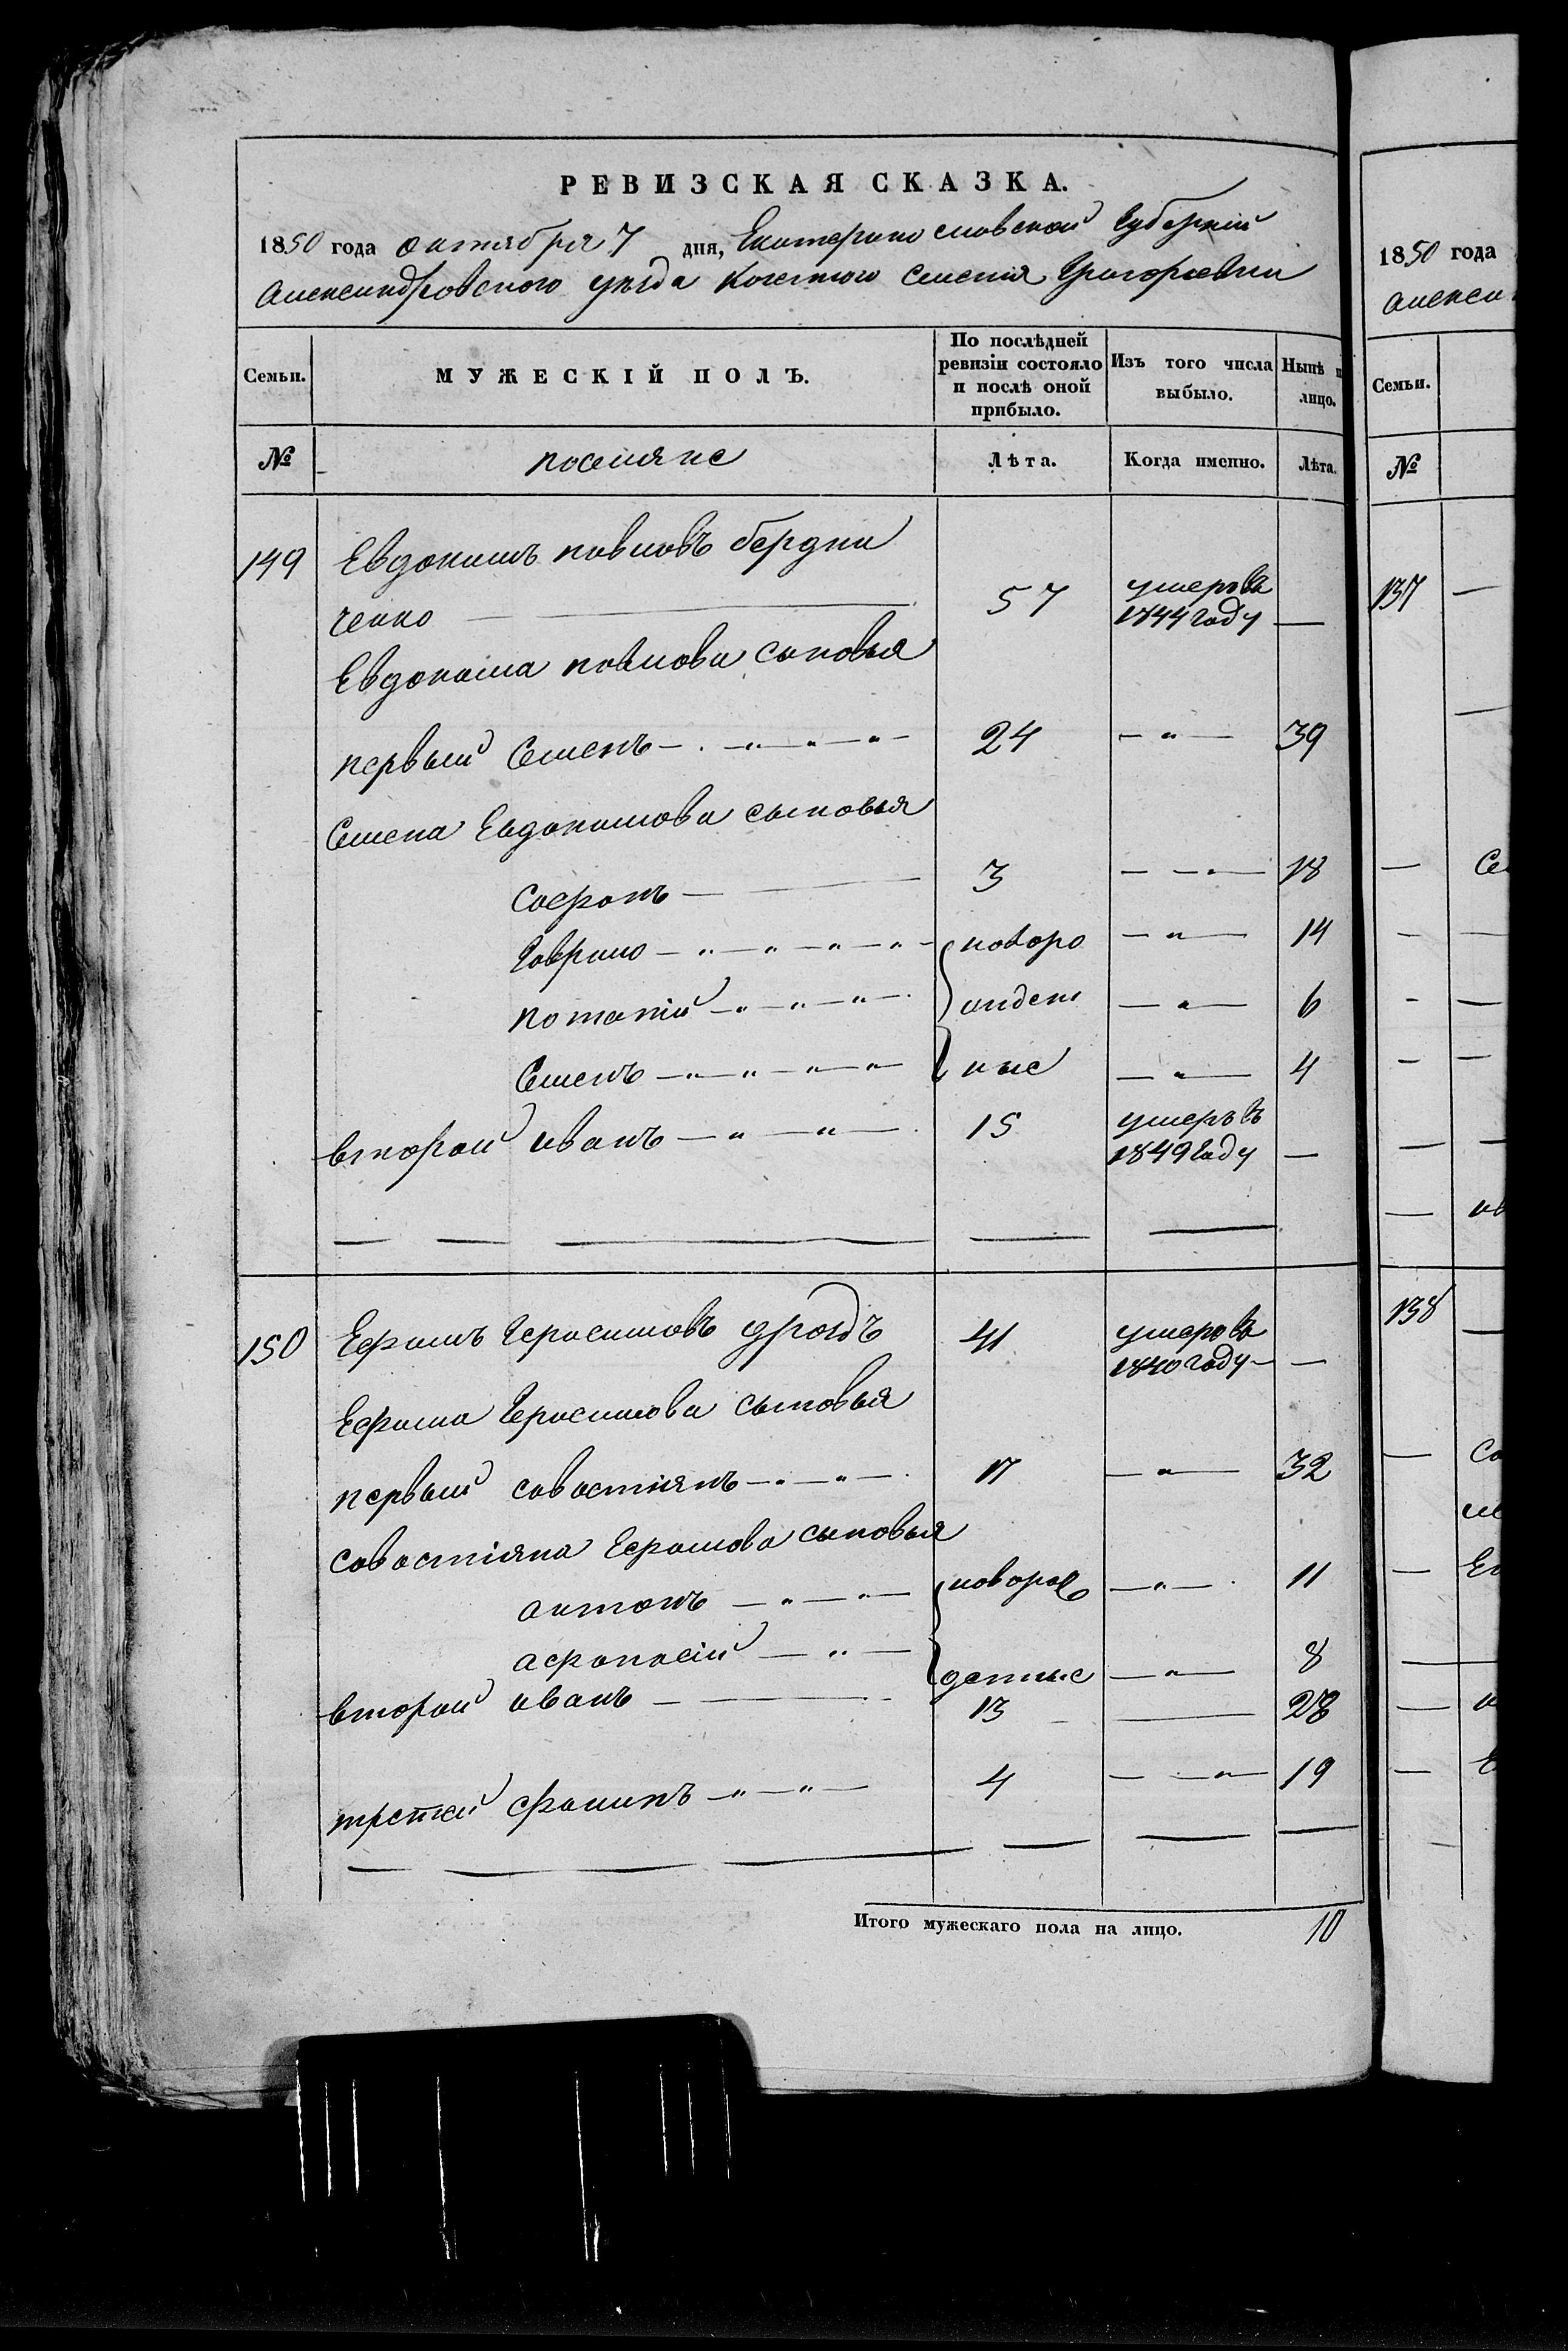 РЕВИЗСКАЯ СКАЗКА.
1850 года октября 7 дня, Екатеринославской Губерніи
Александровского уезда Козенного Селенія Григорьевки
Семьи. МУЖЕСКІЙ ПОЛЪ. По послѣдней ревизіи состояло и послѣ оной прибыло. Изъ того числа выбыло. Нынѣ н лицо.
№ поселяне Лѣта. Когда именно. Лѣта.
149 Евдокимъ павловъ бердни
ченко 57 умеръ въ 1844 году —
Евдокима павлова сыновья
первый Семенъ 24 — 39
Семена Евдокимова сыновья
Софронъ 3 — 18
Гаврило новоро — 14
потапій жден — 6
Семенъ ные — 4
второй иванъ 15 умеръ въ 1849 году —
150 Ефимъ Герасимовъ дроздъ 41 умеръ въ 1840 году —
Ефима Герасимова сыновья
первый савостіянъ 17 — 32
савостіяна Ефимова сыновья
антонъ новорож — 11
афонасій денные — 8
второй иванъ 13 — 28
третій филипъ 4 — 19
Итого мужескаго пола на лицо. 10
1850 года
алекса
Семьи.
№
137
138